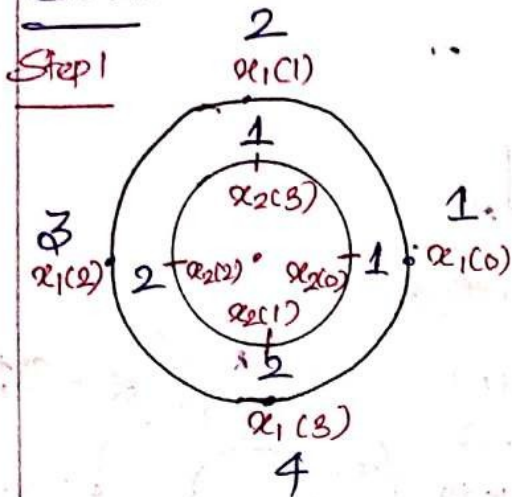 Step 1
2
x₁(1)
1
x₂(3)
3
x₁(2)
2
x₂(2)
x₂(0)
1
1.
x₁(0)
x₂(1)
2
x₁(3)
4